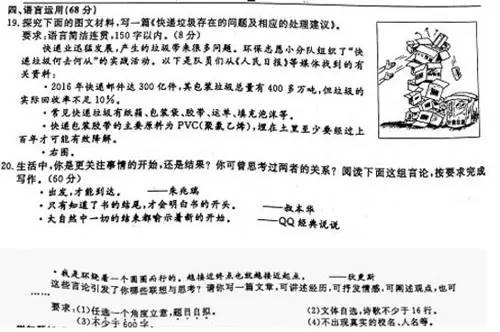 四、语言运用(68分)
19.探究下面的图文材料,写一篇《快递垃圾存在的问题及相应的处理建议》。
要求:语言简洁连贯,150字以内。(8分)
快递业迅猛发展,产生的垃圾带来很多问题。环保志愿小分队组织了“快
递垃圾何去何从”的实践活动。以下是队员们从《人民日报》等媒体找到的有
关资料:
·2016年快递邮件达300亿件,其包装垃圾总量有400多万吨,但垃圾的
实际回收率不足10%。
·常见快递垃圾有纸箱、包装袋、胶带、运单、填充泡沫等。
·快递包装胶带的主要原料为PVC(聚氯乙烯),埋在土里至少要经过上
百年才可能有效降解。
·右图。
20.生活中,你是更关注事情的开始,还是结果?你可曾思考过两者的关系?阅读下面这组言论,按要求完成
写作。(60分)
·出发,才能到达。 ——朱兆瑞
·只有知道了书的结尾,才会明白书的开头。 ——叔本华
·大自然中一切的结束都喻示着新的开始。 ——QQ经典说说
·我是环绕着一个圆圈而行的。越接近终点也就越接近起点。 ——狄更斯
……
这些言论引发了你哪些联想与思考?请你写一篇文章,可讲述经历,可抒发情感,可阐述观点,也可
要求:(1)任选一个角度立意,题目自拟。 (2)文体自选,诗歌不少于16行。
(3)不少于600字。 (4)不出现真实的校名、人名等。